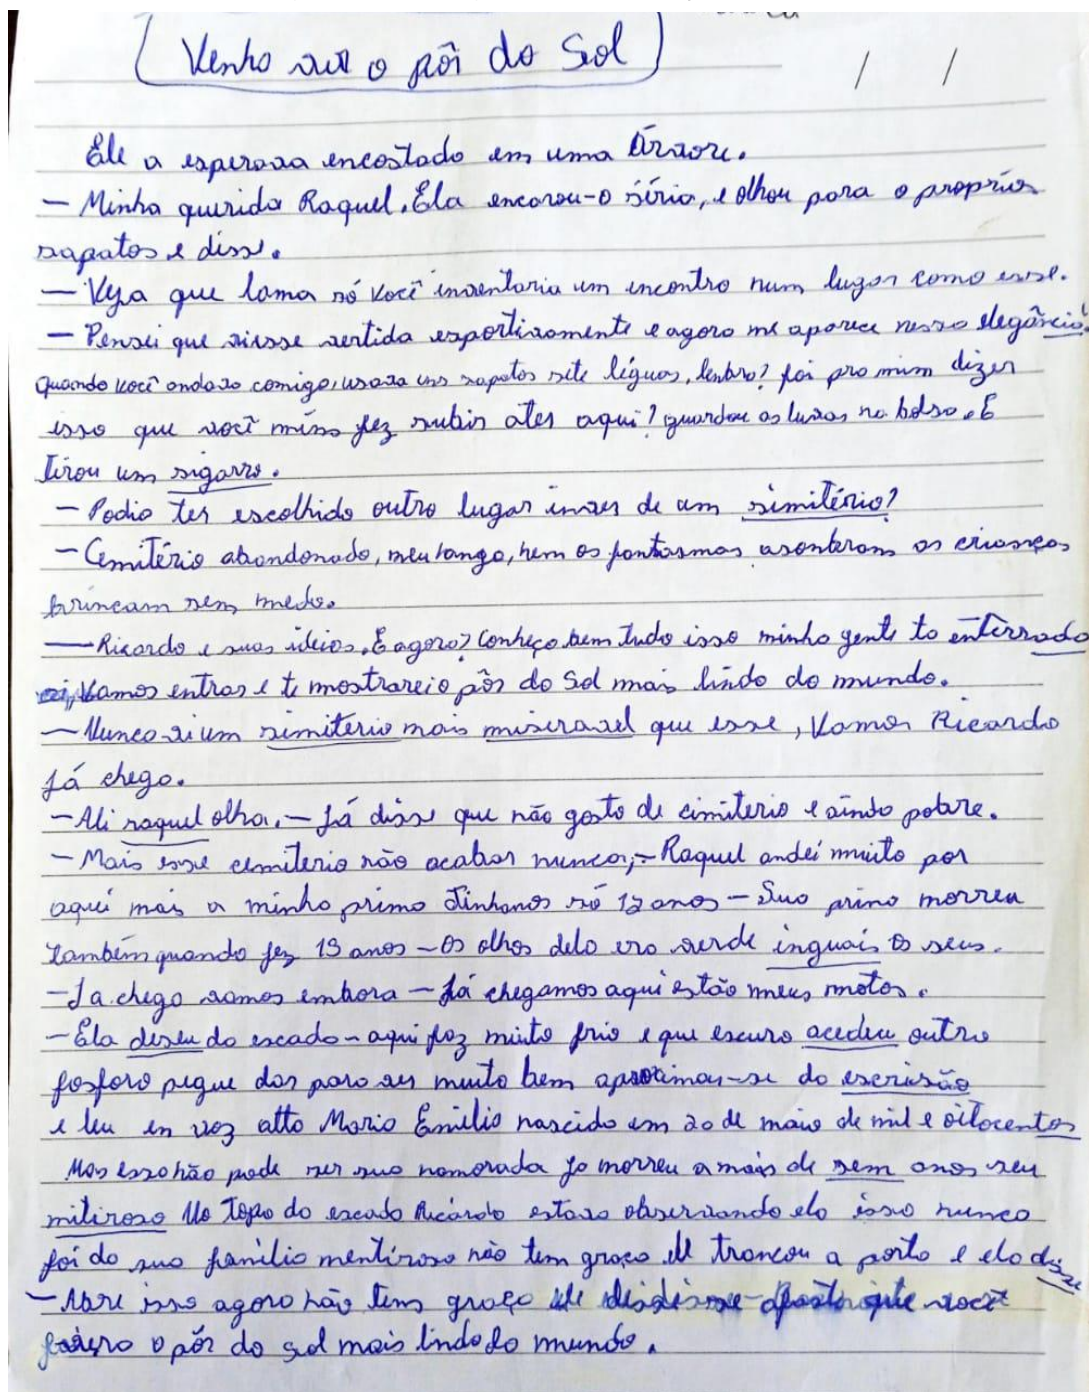 Venho ver o pôr do Sol
/ /
Ele a esperava encostado em uma Árvore.
— Minha querida Raquel. Ela encarou-o séria, e olhou para o proprios
sapatos e disse.
— Veja que lama só você inventaria um encontro num lugar como esse.
— Pensei que viesse vertida esportivamente e agora me aparece nessa elegância!
Quando você andava comigo, usava uns sapatos sete léguas, lembra? foi pra mim dizer
isso que você miss fez subir ates aqui? guardou as luvas na bolsa. E
tirou um sigarro.
— Podia ter escolhido outro lugar invez de um simitério?
— Cemitério abandonado, meu anjo, nem os fantasmas asonbram as crianças
brincam sem medo.
— Ricardo e suas ideias. E agora? Conheço bem tudo isso minha gente ta enterrada
ai, Vamos entrar e te mostrarei o pôr do Sol mais lindo do mundo.
— Nunca vi um simiterio mais miseravel que esse, Vamos Ricardo
Já chega.
— Ali raquel olha. — Já disse que não gosto de cimiterio e ainda pobre.
— Mais esse cemiterio não acabar nunca, — Raquel andei muito por
aqui mais a minha prima tinhanos só 12 anos — Sua prima morreu
também quando fez 15 anos — Os olhos dela era verde inguais os seus.
— Ja chega vamos embora — Já chegamos aqui estão meus motos.
— Ela deseu da escada — aqui faz muito frio e que escuro acedeu outro
fosforo pegue das para ver muito bem aproximou-se da escrisão
e leu en voz alta Maria Emilia nascida em 20 de maio de mil e oitocentos
Mas essa não pode ser sua namorada Ja morreu a mais de sem anos seu
mitiroso No topo da escada Ricardo estava observando ela isso nunca
foi da sua familia mentiroso não tem graça ele trancou a porta e ela disse
— Abre isso agora não tem graça ele que você
o pôr do sol mais lindo do mundo.